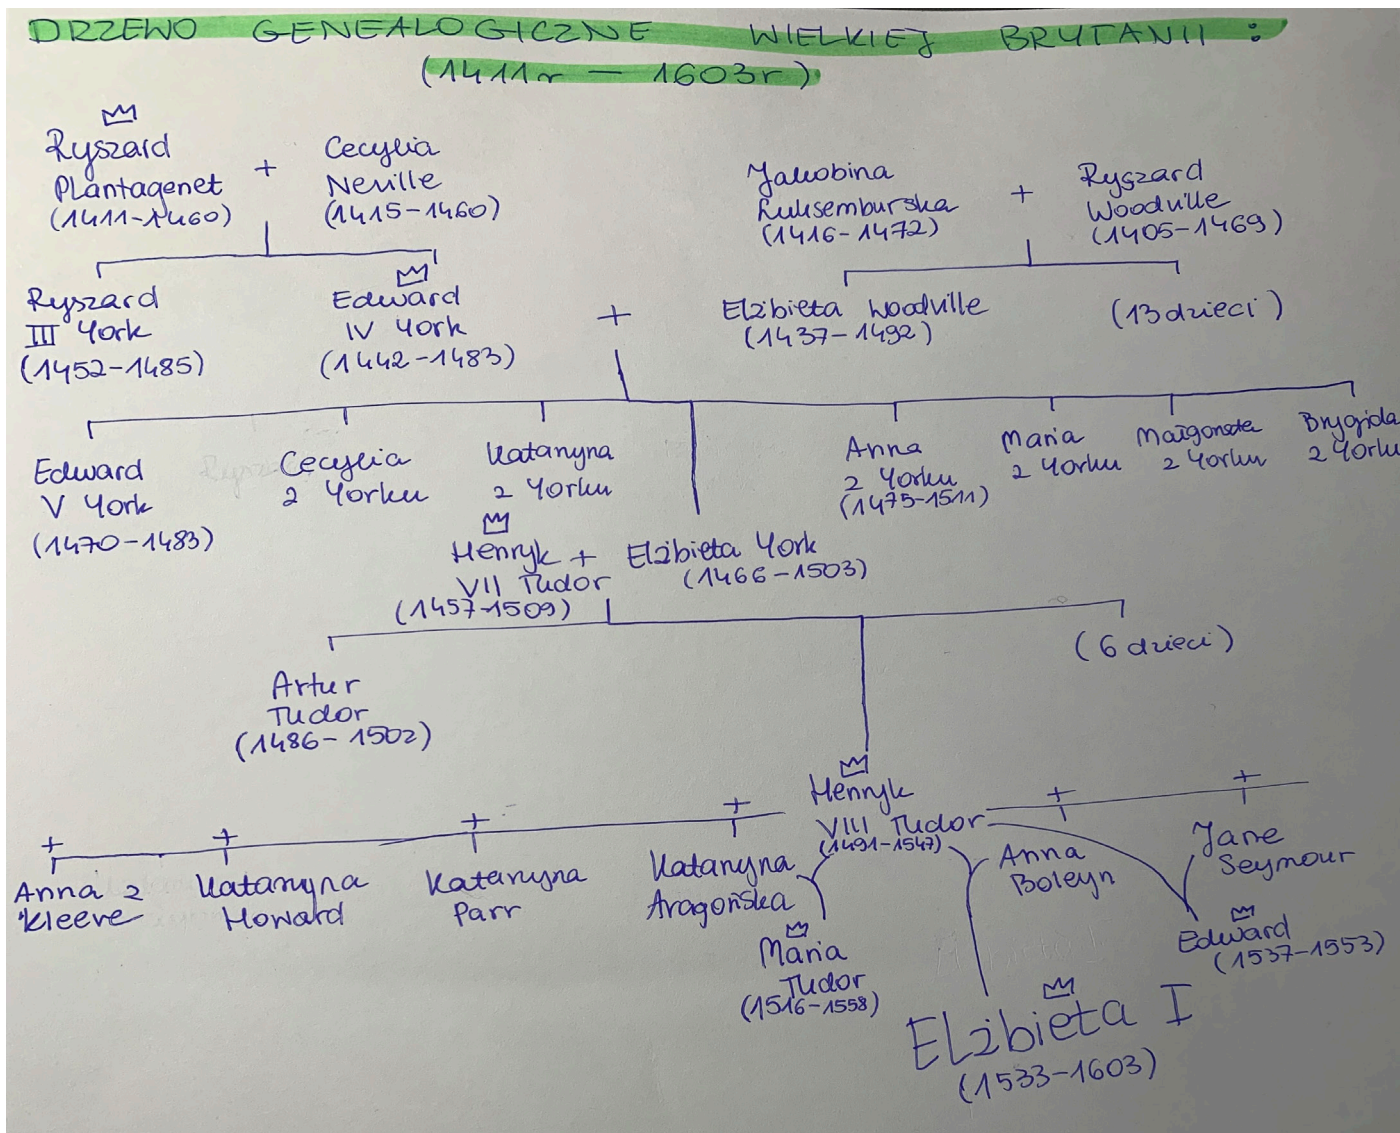 DRZEWO GENEALOGICZNE WIELKIEJ BRYTANII :
(1411r — 1603r)
Ryszard
Plantagenet
(1411-1460)
+
Cecylia
Neville
(1415-1460)
Jakobina
Luksemburska
(1416-1472)
+
Ryszard
Woodville
(1405-1469)
Ryszard
III York
(1452-1485)
Edward
IV York
(1442-1483)
+
Elżbieta Woodville
(1437-1492)
(13 dzieci)
Edward
V York
(1470-1483)
Cecylia
z Yorku
Katarzyna
z Yorku
Anna
z Yorku
(1475-1511)
Maria
z Yorku
Małgorzata
z Yorku
Brygida
z Yorku
Henryk +
VII Tudor
(1457-1509)
Elżbieta York
(1466-1503)
Artur
Tudor
(1486-1502)
(6 dzieci)
Henryk
VIII Tudor
(1491-1547)
+
Anna z
Kleeve
+
Katarzyna
Howard
+
Katarzyna
Parr
+
Katarzyna
Aragońska
+
Anna
Boleyn
+
Jane
Seymour
Maria
Tudor
(1516-1558)
Elżbieta I
(1533-1603)
Edward
(1537-1553)